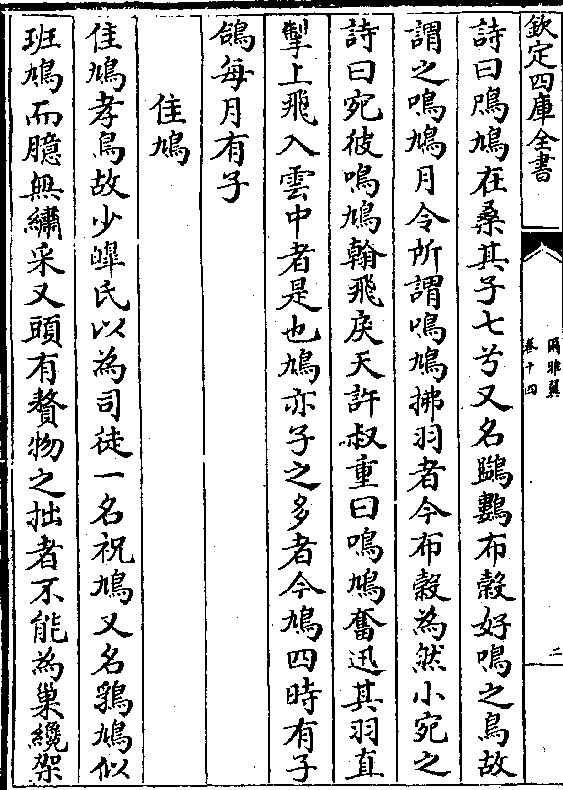 欽定四庫全書
爾雅翼
卷十四
二
詩曰鳲鳩在桑其子七兮又名鷑鷜布穀好鳴之鳥故
謂之鳴鳩月令所謂鳴鳩拂羽者今布穀為然小宛之
詩曰宛彼鳴鳩翰飛戾天許叔重曰鳴鳩奮迅其羽直
掣上飛入雲中者是也鳩亦子之多者今鳩四時有子
鴿每月有子
隹鳩
隹鳩孝鳥故少暤氏以為司徒一名祝鳩又名鶉鳩似
班鳩而臆無繡采又頭有贅物之拙者不能為巢纔架